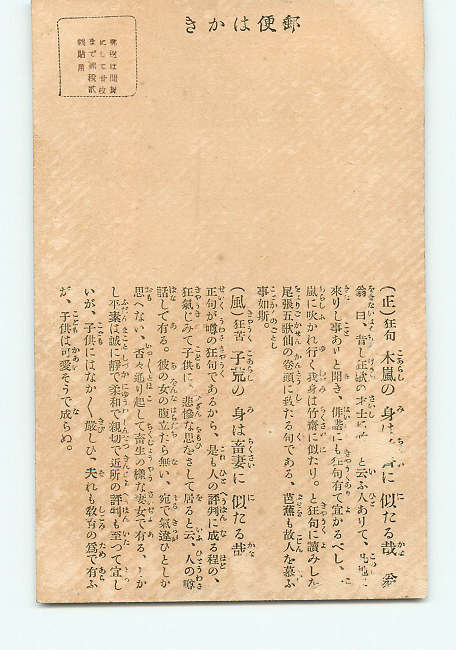 郵便はかき
(正) 狂句 木嵐の 身は に 似たる哉
翁 曰、昔し狂歌の才士 と云ふ人ありて、
來りし事ありと聞き、俳諧にも狂句有て宜かるべし、
嵐に吹かれ行く我身は竹齋に似たり。と狂句に讀みした
尾張五歌仙の卷頭に我たる句である、芭蕉も故人を慕ふ
事如斯。
(風) 狂苦 子荒の 身は畜妻に 似たる哉
正句が噂の狂句であるから、是も人の評判に成る程の、
狂氣じみて子供に、悲慘な思をさして居ると云、人の噂
話しで有る。彼の女の腹立たら無い、宛で氣違ひとしか
思へない、否々通り起して畜生の樣な妻女で有る、しか
し平素は誠に靜で柔和で親切で近所の評判も至つて宜し
いが、子供にはなか〱嚴しひ、夫れも敎育の爲で有ふ
が、子供は可愛そうで成らぬ。